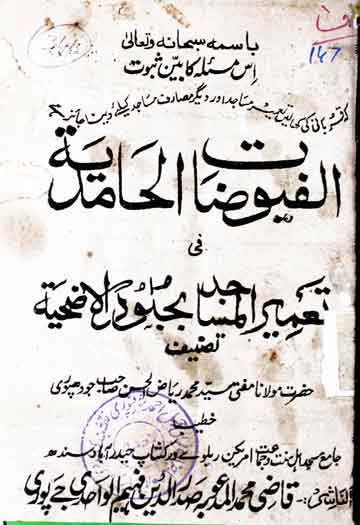 باسمہ سبحانہ وتعالیٰ
اس مسئلہ کا بیّن ثبوت
کہ قربانی کی کھالیں تعمیر مساجد اور دیگر مصارف مساجد کیلئے دینا جائز ہے
الفیوضات الحامدیة
فی
تعمیر المساجد بجلود الاضحیة
تصنیف
حضرت مولانا مفتی سید محمد ریاض الحسن صاحب جودھپوری
خطیب
جامع مسجد اہل سنت وجماعت امریکن ریلوے ورکشاپ حیدرآباد سندھ
الناشر:- قاضی محمد المدعو بہ صدر الدین فہیم الواحدی جے پوری
۱۴۷